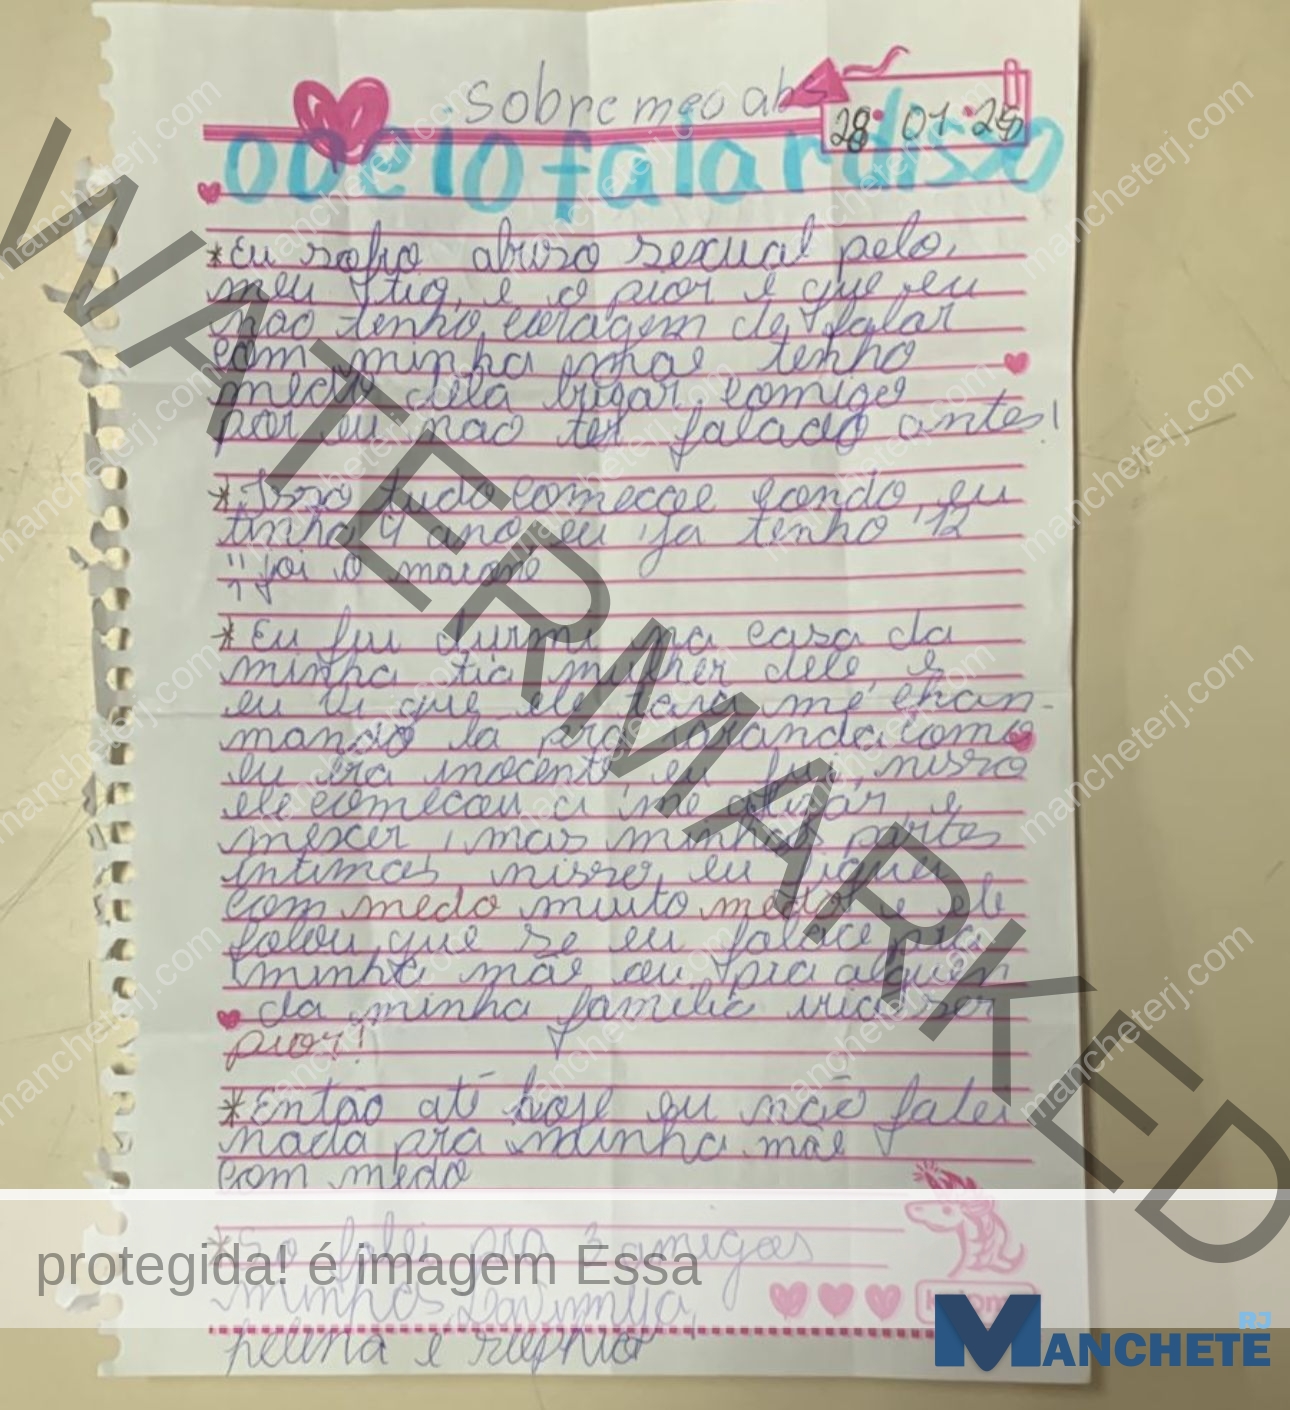 Sobre meo abs
28 01 25
odeio falar disso
*Eu sofro abuso sexual pelo
meu tio, e o pior é que eu
não tenho coragem de falar
com minha mãe tenho
medo dela brigar comigo
por eu não ter falado antes!
*Isso tudo começoe condo eu
tinha 9 ano eu ja tenho 12
foi o
*Eu fui durmi na casa da
minha tia mulher dele e
eu vi que ele tava me chan-
mando la pra varanda como
eu era inocente eu fui, nisso
ele começou a me alizar e
mexer nas minhas partes
intimas nisso eu fiquei
com medo muito medo e ele
falou que se eu falace pra
minha mãe ou pra alguem
da minha familia iria ser
pior!
*Então até hoje eu não falei
nada pra minha mãe
com medo
*So falei pra 3 amigas
minhas
e
protegida! é imagem Essa
MANCHETE RJ
WATERMARKED
mancheterj.com